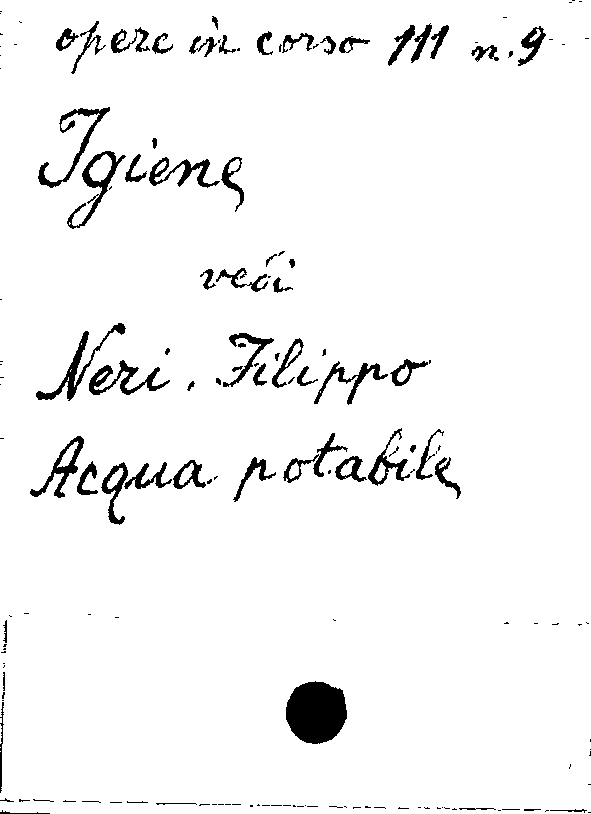 opere in corso 111 n. 9
Igiene
vedi
Neri. Filippo
Acqua potabile